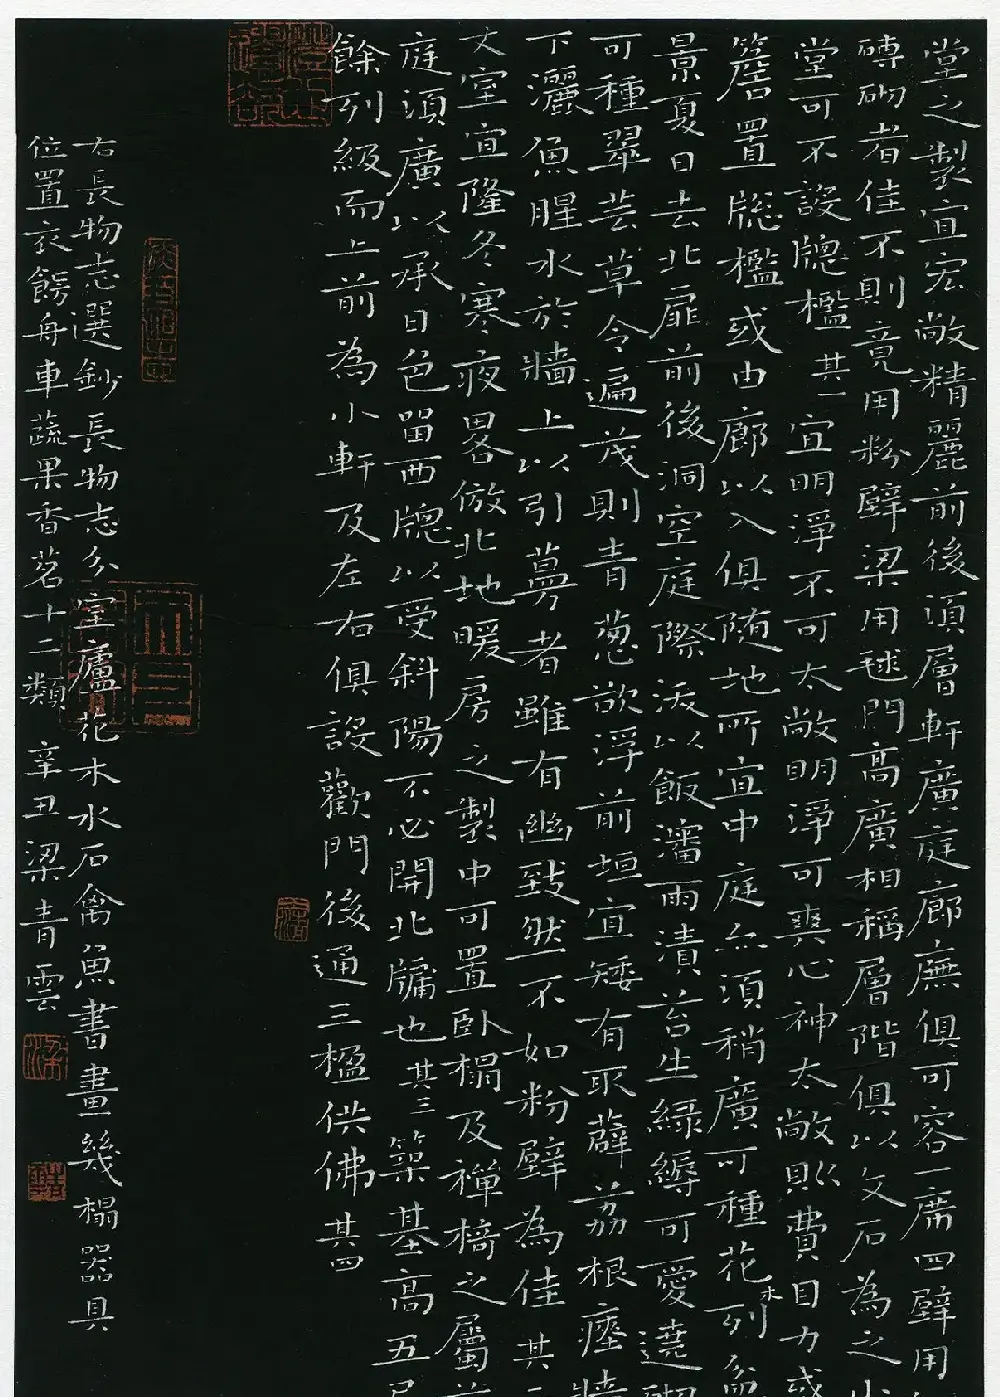 堂之製宜宏敞精麗前後須層軒廣庭廊廡俱可容一席四壁用
磚砌者佳不則竟用粉壁梁用毬門高廣相稱層階俱以文石為之小
堂可不設牕檻其一宜明淨不可太敞明淨可爽心神太敞則費目力或
簷置牕檻或由廊以入俱随地所宜中庭亦須稍廣可種花木列盆
景夏日去北扉前後洞空庭際沃以飯瀋雨漬苔生緑縟可愛遶砌
可種翠芸草令遍茂則青葱欲浮前垣宜矮有取薜荔根瘞墻
下灑魚腥水於牆上以引蔓者雖有幽致然不如粉壁為佳其二
丈室宜隆冬寒夜畧倣北地暖房之製中可置臥榻及禅椅之屬前
庭須廣以承日色留西牕以受斜陽不必開北牖也其三築基高五尺
餘列級而上前為小軒及左右俱設歡門後通三楹供佛其四
右長物志選鈔長物志分室廬花木水石禽魚書畫幾榻器具
位置衣餝舟車蔬果香茗十二類辛丑梁青雲